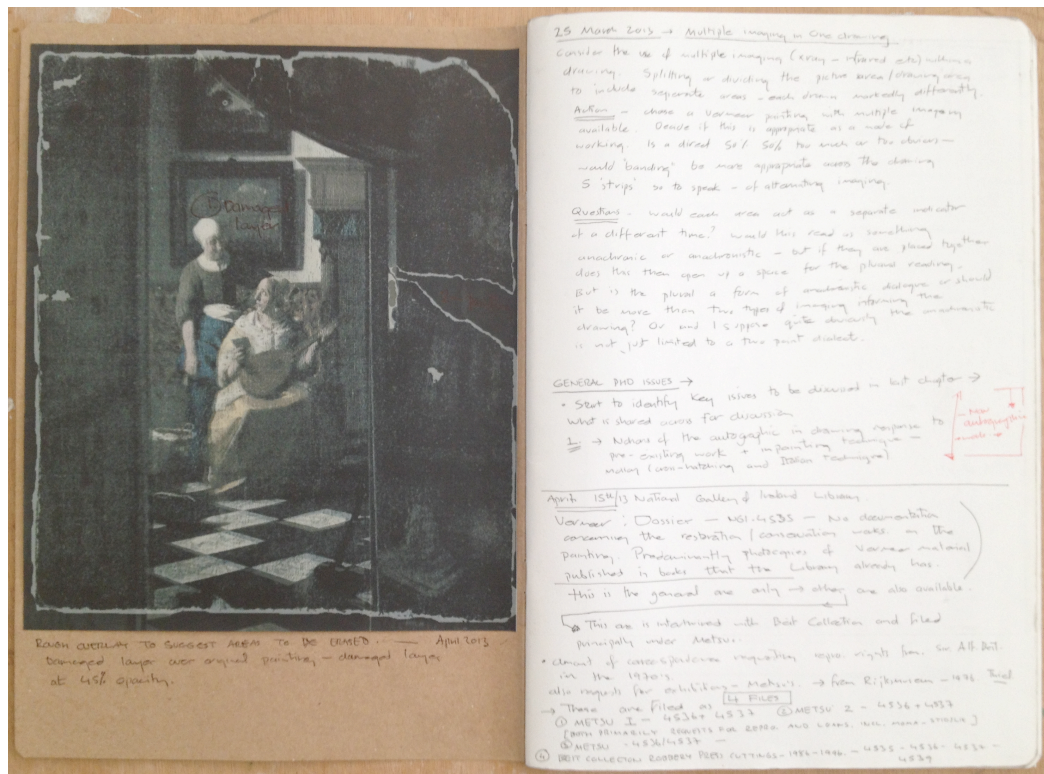 ③ Damaged
layer
ROUGH OVERLAY TO SUGGEST AREAS TO BE ERASED. — April 2013
Damaged layer over original painting - damaged layer
at 45% opacity.
25 March 2013 → Multiple imaging in One drawing
Consider the use of multiple imaging (xray - infrared etc) within a
drawing. Splitting or dividing the picture area/drawing area
to include separate areas - each drawn markedly differently.
Action - chose a Vermeer painting with multiple imaging
available. Decide if this is appropriate as a mode of
working. Is a direct 50% 50% too much or too obvious -
would 'banding' be more appropriate across the drawing
5 'strips' so to speak - of alternating imaging.
Questions. would each area act as a separate indicator
of a different time? Would this read as something
anachronic or anachronistic - but if they are placed together
does this then open up a space for the plural reading.
But is the plural a form of anachronistic dialogue or should
it be more than two types of imaging informing the
drawing? Or and I suppose quite obviously the anachronistic
is not just limited to a two point dialect.
GENERAL PHD ISSUES →
• Start to identify key issues to be discussed in last chapter →
What is shared across for discussion
1. → Notions of the autographic in drawing response to
pre-existing work + inpainting technique -
(cross-hatching and Italian technique)
Non
autographic
April 15th/13 National Gallery of Ireland Library
Vermeer: Dossier - NGI.4535 - No documentation
concerning the restoration/conservation work on the
painting. Predominantly photocopies of Vermeer material
published in books that the Library already has.
this is the general one only → other are also available.
This one is intertwined with Beit Collection and filed
principally under Metsu.
• amount of correspondence requesting repro. rights from Sir Alf. Beit.
in the 1970's.
also requests for exhibitions - Metsu's. → from Rijksmuseum - 1976
4 FILES
→ These are filed as
① METSU I - 4536 + 4537 ② METSU 2 - 4536 + 4537
[BOTH PRIMARILY REQUESTS FOR REPRO AND LOANS, INCL.
③ METSU - 4536/4537 -
④ BEIT COLLECTION ROBBERY PRESS CUTTINGS - 1986-1996. - 4535 - 4536 - 4536 -
4539